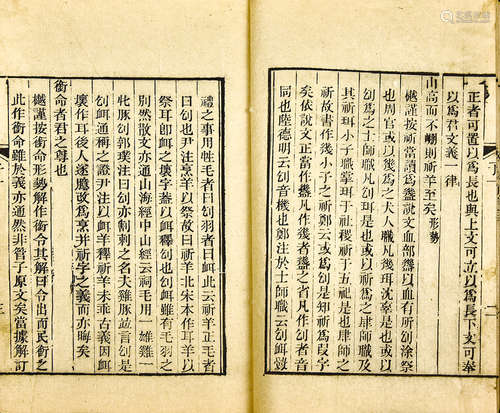 正者可置以爲長也與上文可立以爲長下文可奉
以爲君文義一律
山高而不崩則祈羊至矣形勢
樾謹按祈當讀爲盤說文血部盤以血有所刉涂祭
也周官或以幾爲之犬人職凡幾珥沈辜是也或以
刉爲之士師職凡刉珥是也或以祈爲之肆師職及
其祈珥小子職掌珥于社稷祈于五祀是也肆師之
祈故書作幾小子之祈鄭云或爲刉是知祈爲叚字
矣依說文正當作盤幾者盤之省凡作刉者音
同也陸德明云刉音機也鄭注於士師職云刉衈釁
禮之事用牲毛者曰刉羽者曰衈此云祈羊正毛者
曰刉也尹注烹羊以祭故曰祈羊北宋本作耳羊以
祭耳卽衈之壞字蓋以衈釋刉也刉衈雖有毛羽之
別然散文亦通山海經中山經云祠毛用一雄雞一
牝豚刉郭璞注曰刉亦割刺之名夫雞豚竝言刉
刉衈通稱之證尹注以衈釋祈羊未乖古義因衈
壞作耳後人遂臆改爲烹并祈字之義而亦晦矣
銜命者君之尊也
樾謹按銜命形勢解作銜令其解曰令出而民銜之
此作銜命雖於義亦通然非管子原文矣當據解訂
子一
二
子一
三